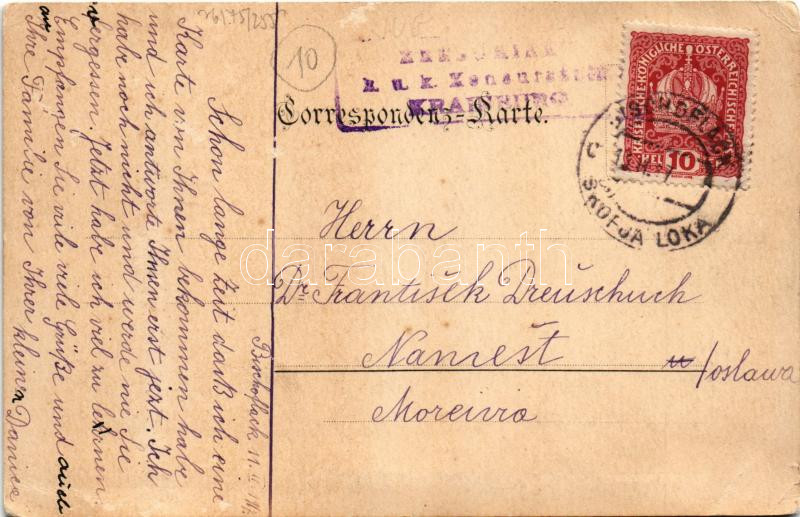 26175/255
10
ZENSURIERT
k.u.k. Zensurstelle
KRAINBURG
Correspondenz-Karte.
KAISERLICHE KÖNIGLICHE ÖSTERREICHISCHE POST
HELLER 10
BISCHOFLACK
ŠKOFJA LOKA
Schon lange Zeit daß ich eine
Karte von Ihnen bekommen habe
und ich antworte Ihnen erst jezt. Ich
habe noch nicht und werde nie Sie
vergessen. Jetzt habe ich viel zu lernen.
Empfangen Sie viele viele Grüße und auch
an Ihre Familie von Ihrer kleinen Danica
Bischoflack 11. II. 17.
Herrn
Dr. František Dreuschuch
Namešt
a/Oslawa
darabanth